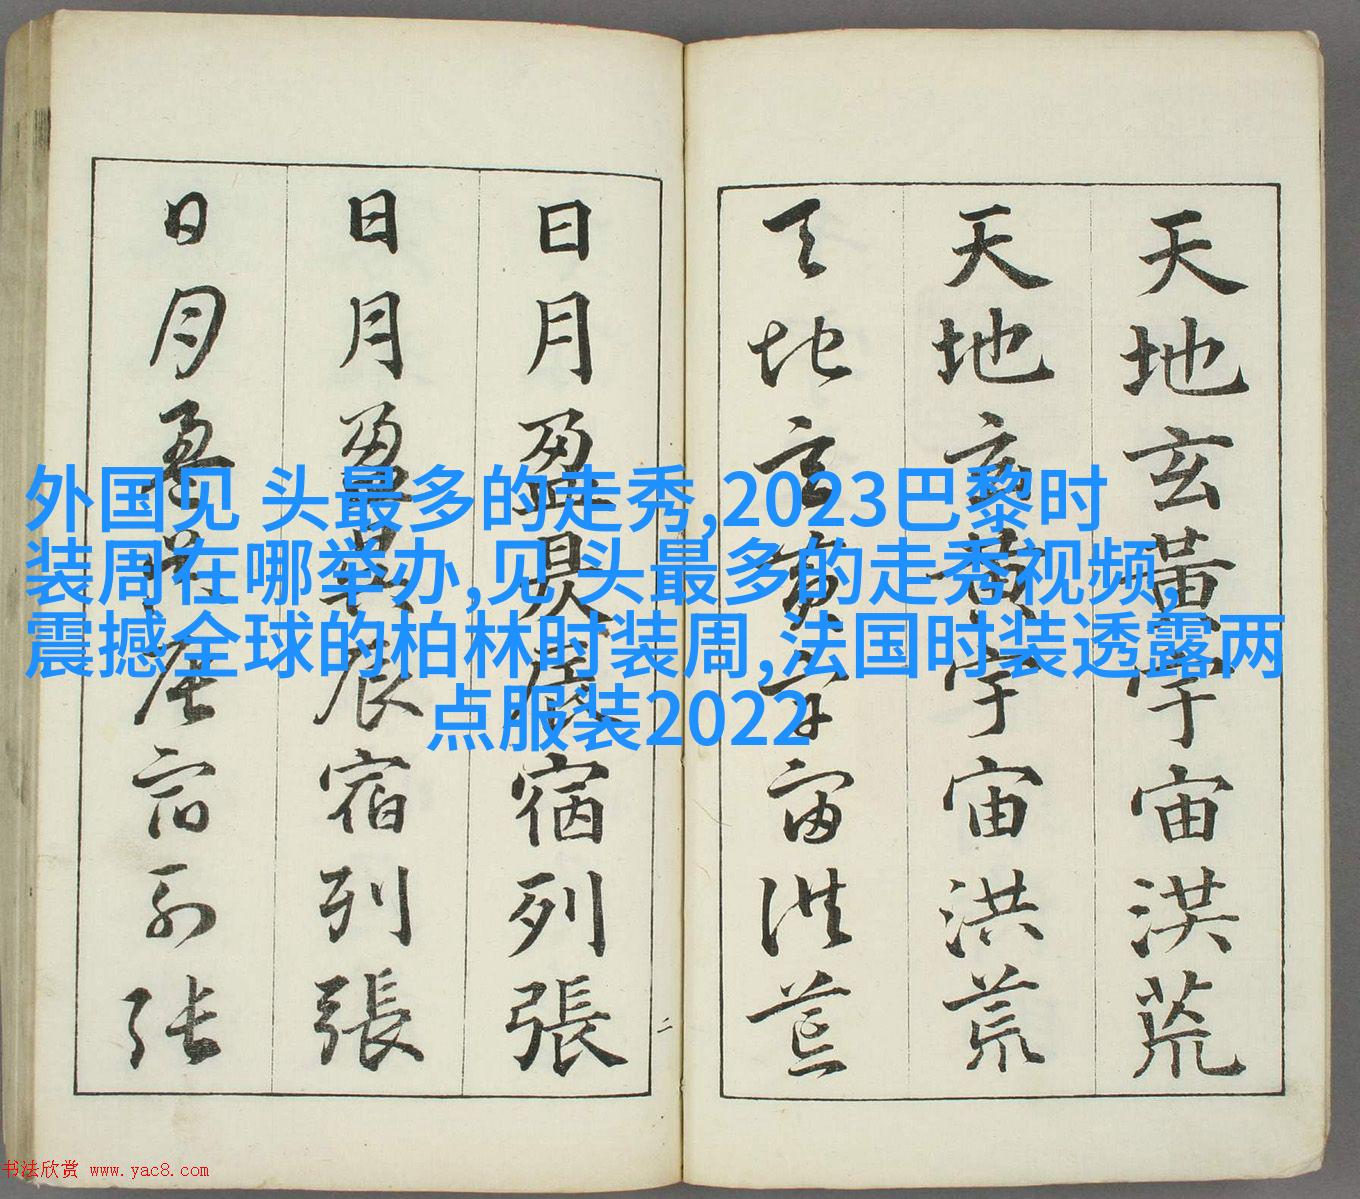 天地玄黃宇宙洪荒
天地玄黃宇宙洪荒
天地玄黃宇宙洪荒
二
日月盈昃辰宿列張
日月盈昃辰宿列張
日月盈昃辰宿列張
外国见 头最多的走秀,2023巴黎时
装周在哪举办,见 头最多的走秀视频,
震撼全球的柏林时装周,法国时装透露两
点服装2022
书法欣赏 www.yac8.com